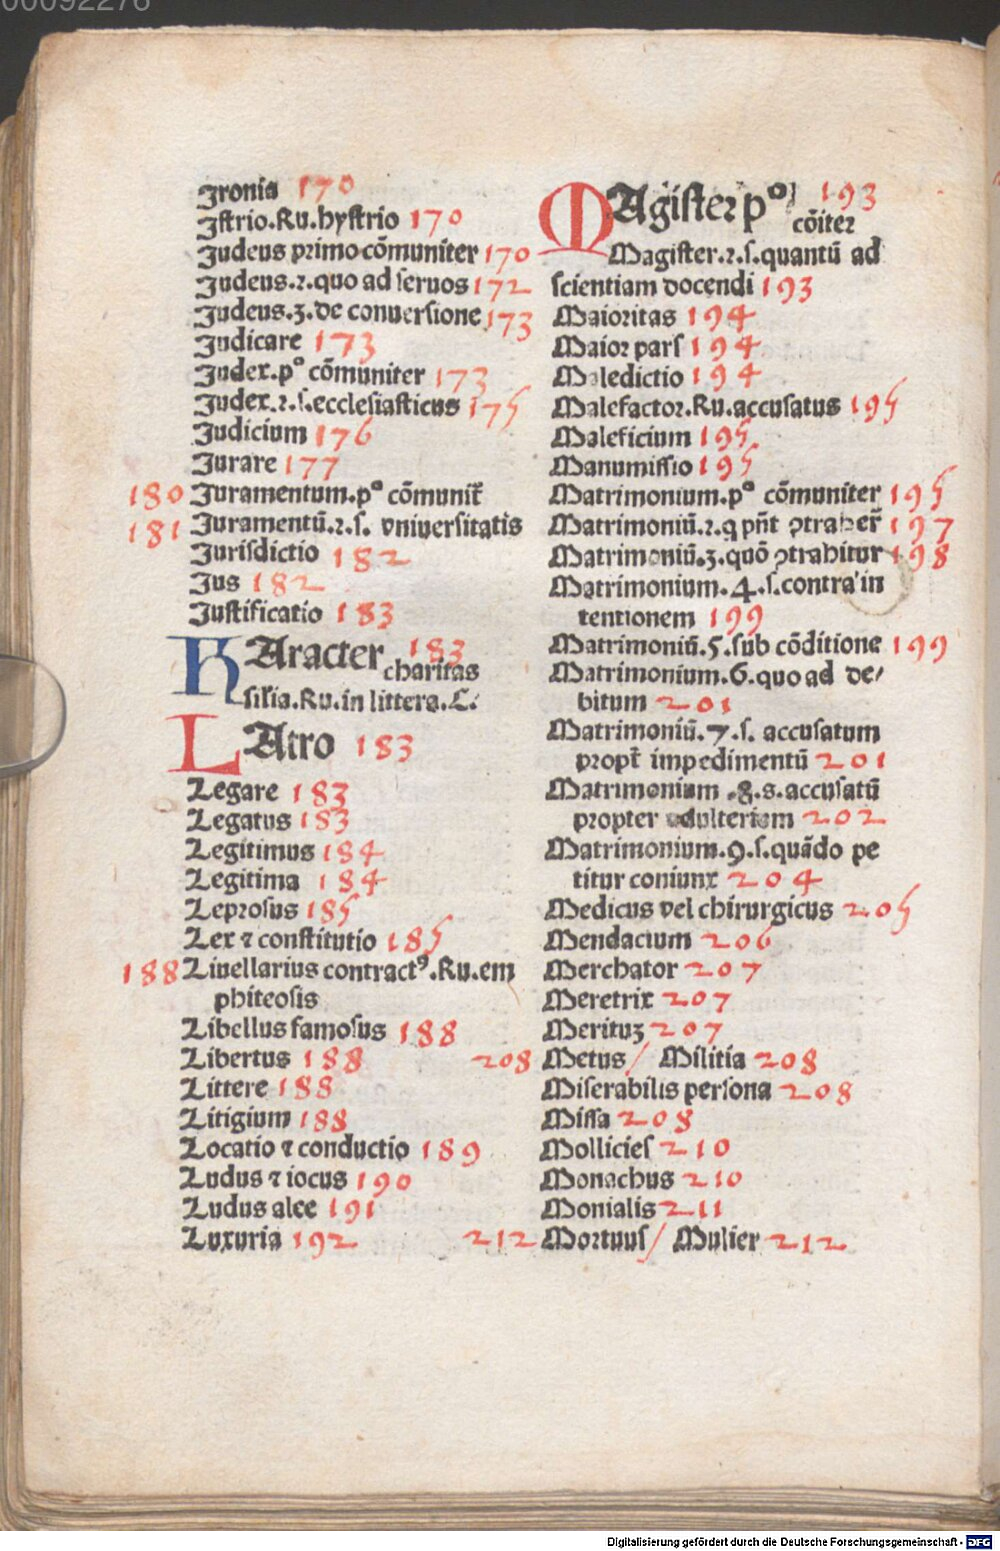 00092276
Ironia 170
Istrio.Ru.hystrio 170
Iudeus primo cōmuniter 170
Iudeus.2.quo ad seruos 172
Iudeus.3.de conuersione 173
Iudicare 173
Iudex.pº cōmuniter 173
Iudex.2.s.ecclesiasticus 175
Iudicium 176
Iurare 177
180 Iuramentum.pº cōmunit̄
181 Iuramentū.2.s. vniuersitatis
Iurisdictio 182
Ius 182
Iustificatio 183
KAracter 183
charitas
silia.Ru.in littera.C.
LAtro 183
Legare 183
Legatus 183
Legitimus 184
Legitima 184
Leprosus 185
Lex ⁊ constitutio 185
188 Liuellarius contractꝰ.Ru.em
phiteosis
Libellus famosus 188
Libertus 188
Littere 188
Litigium 188
Locatio ⁊ conductio 189
Ludus ⁊ iocus 190
Ludus alee 191
Luxuria 192
MAgister pº 193
cōiter
Magister.2.s.quantū ad
scientiam docendi 193
Maioritas 194
Maior pars 194
Maledictio 194
Malefactor.Ru.accusatus 195
Maleficium 195
Manumissio 195
Matrimonium.pº cōmuniter 195
Matrimoniū.2.q pn̄t ꝯtraher̄ 197
Matrimoniū.3.quō ꝯtrahitur 198
Matrimonium.4.s.contra in
tentionem 199
Matrimoniū.5.sub cōditione 199
Matrimonium.6.quo ad de/
bitum 201
Matrimoniū.7.s. accusatum
propt̄ impedimentū 201
Matrimonium .8.s.accusatū
propter adulterium 202
Matrimonium.9.s.quādo pe
titur coniunx 204
Medicus vel chirurgicus 205
Mendacium 206
Merchator 207
Meretrix 207
Merituꝫ 207
208 Metus / Militia 208
Miserabilis persona 208
Missa 208
Mollicies 210
Monachus 210
Monialis 211
212 Mortuus / Mulier 212
Digitalisierung gefördert durch die Deutsche Forschungsgemeinschaft - DFG